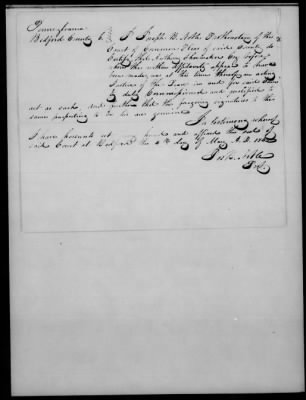 Pennsylvania
Bedford County SS
I Joseph B. Noble Prothonotary of the
Court of Common Pleas of said County do
Certify that Anthony Shoemaker Esq before
whom the within affidavits appear to have
been made, was at the time thereof an acting
Justice of the Peace in and for said County
duly Commissioned and qualified to
act as such, and further that the foregoing signatures to the
same purporting to be his are genuine
In testimony whereof
I have hereunto set my hand and affixed the seal of
said Court at Bedford the 4th day of May A.D.
Jos. B. Noble
Prot.